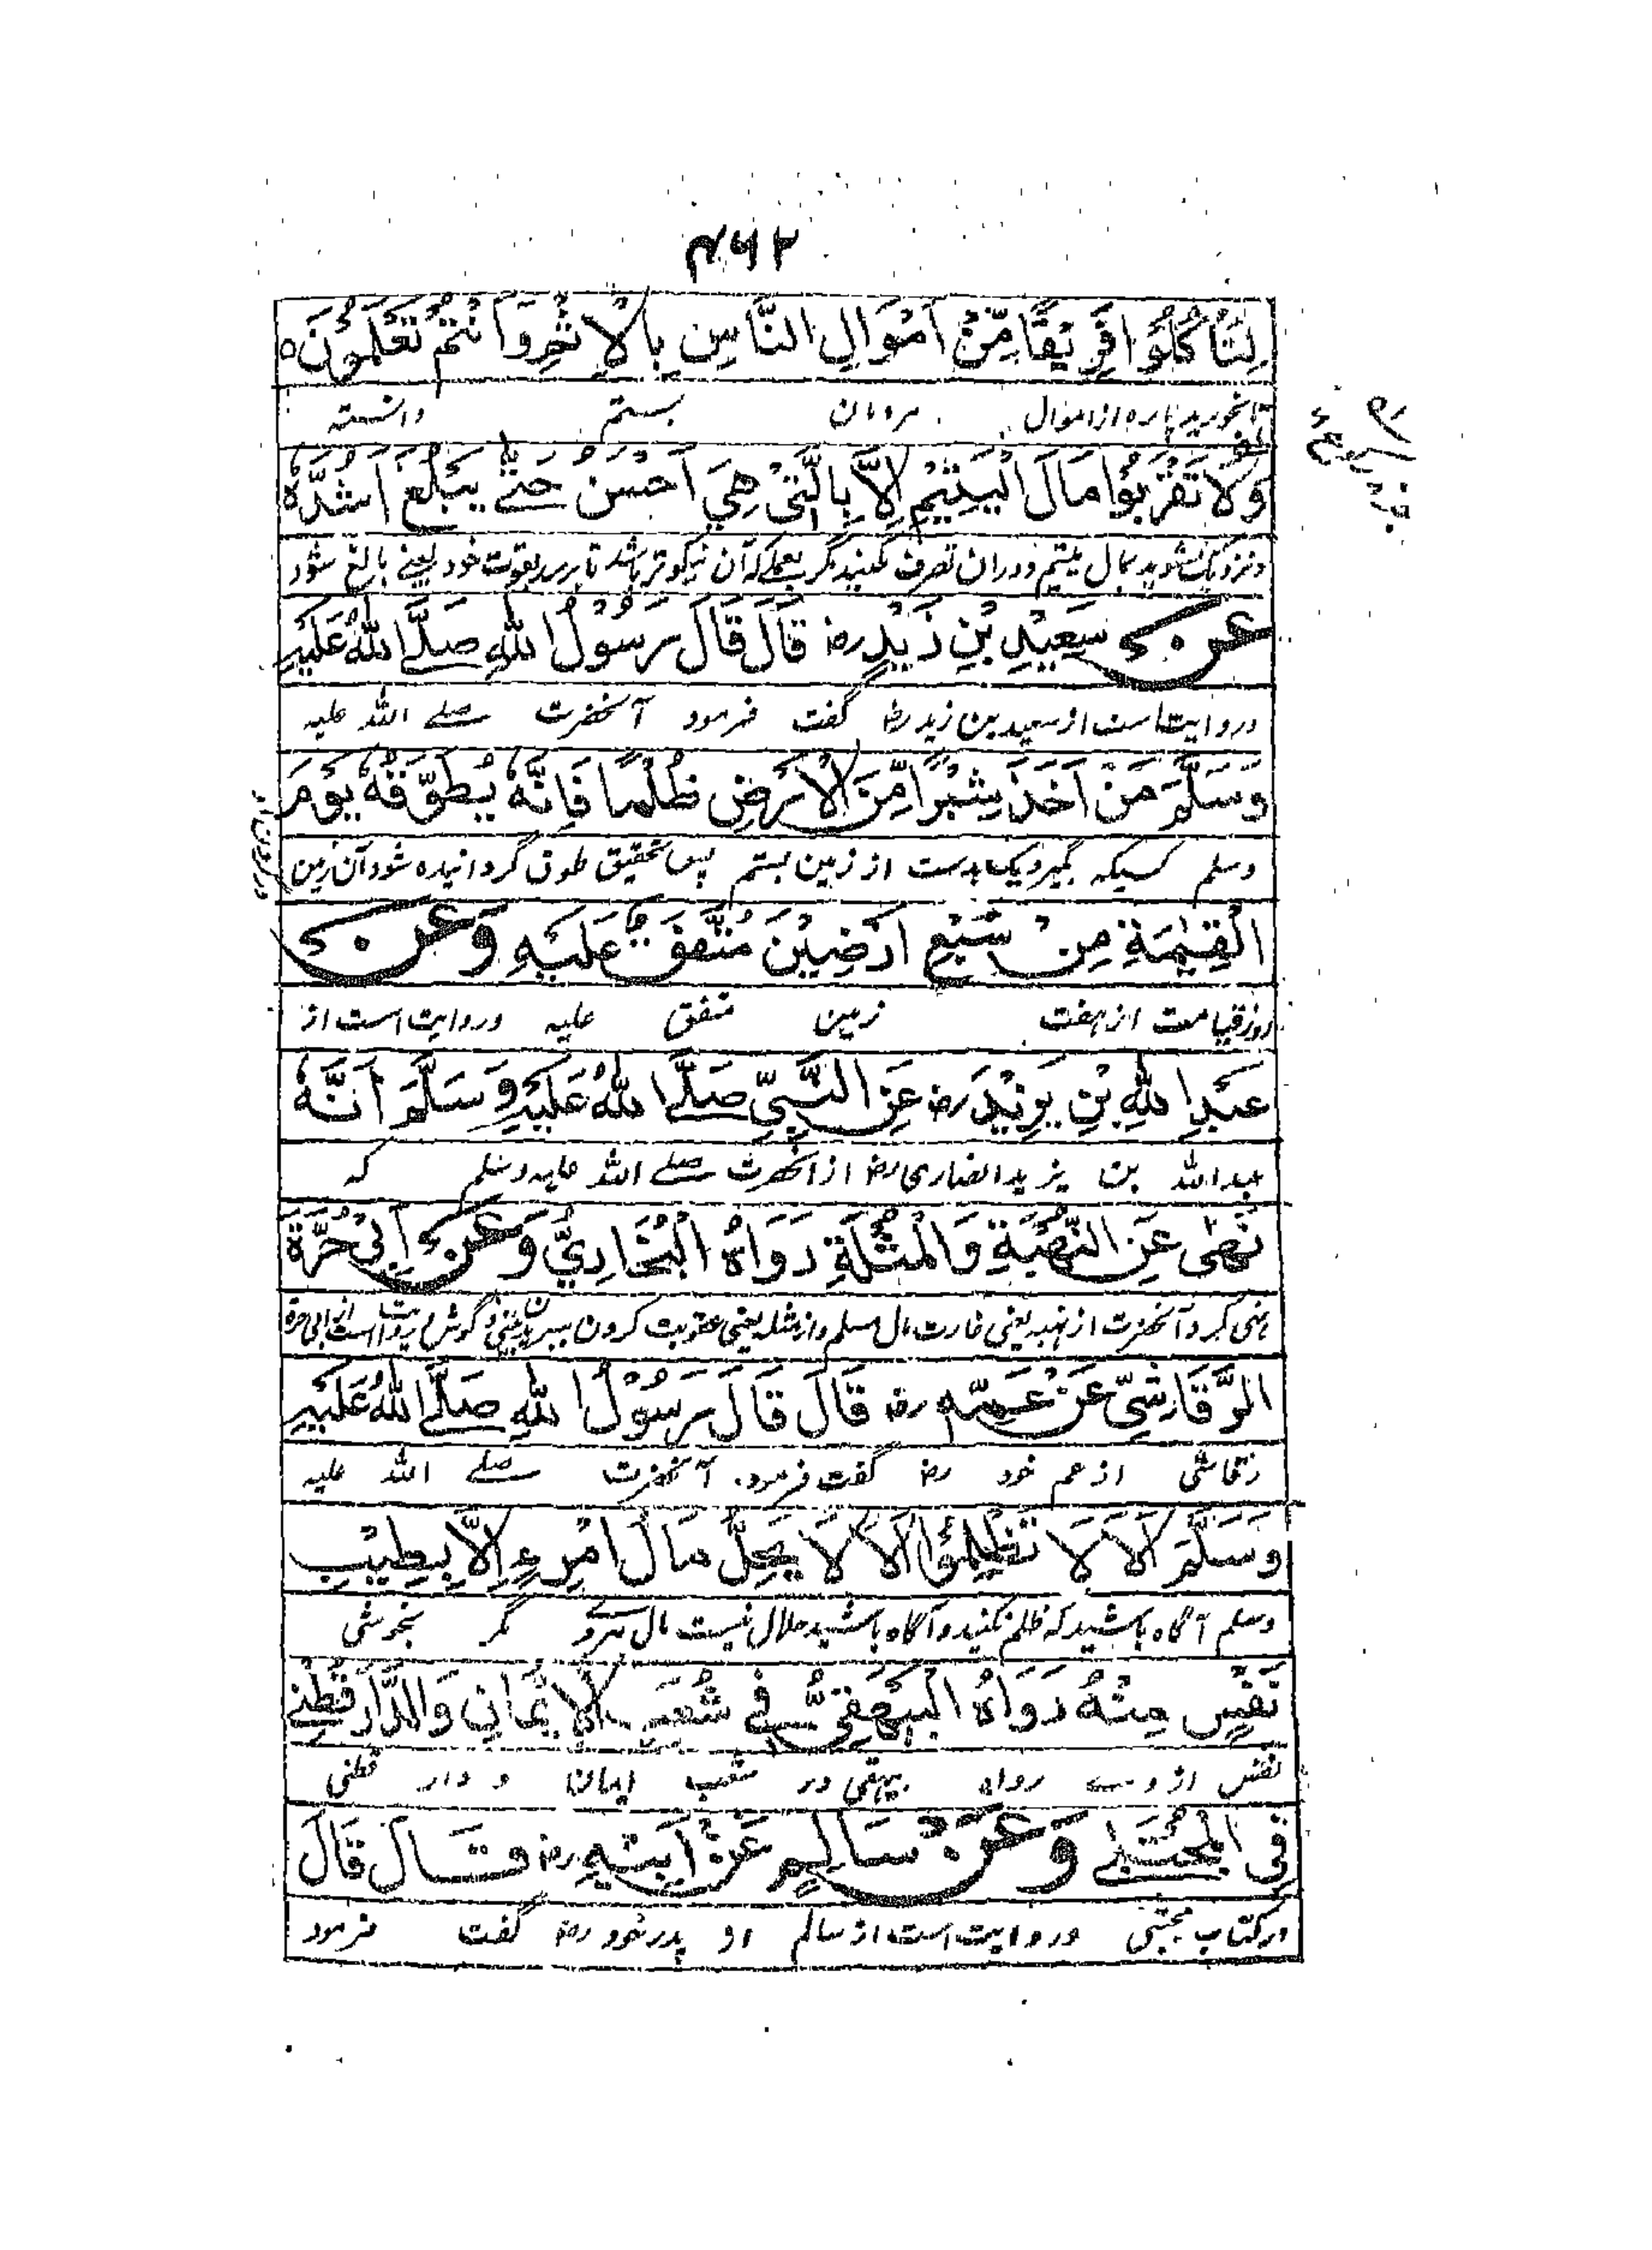 ۴۶۲
لِتَأْكُلُوْا فَرِيْقًا مِّنْ اَمْوَالِ النَّاسِ بِالْاِثْمِ وَاَنْتُمْ تَعْلَمُوْنَ ه
تا بخورید پاره از اموال مردمان بستم دانسته
وَلَا تَقْرَبُوْا مَالَ الْيَتِيْمِ اِلَّا بِالَّتِيْ هِيَ اَحْسَنُ حَتّٰى يَبْلُغَ اَشُدَّهٗ
و نزدیک نشوید بمال یتیم و دران تصرف نکنید مگر بعملے که آن نیکوتر باشد تا برسد بقوت خود یعنے بالغ شود
عَنْ سَعِيْدِ بْنِ زَيْدٍ رض قَالَ قَالَ رَسُوْلُ اللّٰهِ صَلَّے اللّٰهُ عَلَيْهِ
و روایت است از سعید بن زید رض گفت فرمود آنحضرت صلے الله علیه
وَسَلَّمَ مَنْ اَخَذَ شِبْرًا مِّنَ الْاَرْضِ ظُلْمًا فَاِنَّهٗ يُطَوَّقُهٗ يَوْمَ
وسلم کسیکه بگیرد یک بدست از زمین بستم پس تحقیق طوق گردانیده شود آن زمین
الْقِيٰمَةِ مِنْ سَبْعِ اَرْضِيْنَ مُتَّفَقٌ عَلَيْهِ وَعَنْ
روز قیامت از هفت زمین متفق علیه و روایت است از
عَبْدِ اللّٰهِ بْنِ يَزِيْدَ رض عَنِ النَّبِيِّ صَلَّے اللّٰهُ عَلَيْهِ وَسَلَّمَ اَنَّهٗ
عبدالله بن یزید انصاری رض از آنحضرت صلے الله علیه وسلم که
نَهٰى عَنِ النُّهْبَةِ وَالْمُثْلَةِ رَوَاهُ الْبُخَارِيُّ وَعَنْ اَبِيْ حُرَّةَ
نهی کرد آنحضرت از نهبه یعنی غارت مال مسلم و از مثله یعنی عقوبت کردن ببریدن بینی و گوش و روایت است از ابی حره
الرَّقَاشِيِّ عَنْ عَمِّهٖ رض قَالَ قَالَ رَسُوْلُ اللّٰهِ صَلَّے اللّٰهُ عَلَيْهِ
رقاشی از عم خود رض گفت فرمود آنحضرت صلے الله علیه
وَسَلَّمَ اَلَا لَا تَظْلِمُوْا اَلَا لَا يَحِلُّ مَالُ امْرِءٍ اِلَّا بِطِيْبِ
وسلم آگاه باشید که ظلم نکنید و آگاه باشید حلال نیست مال مردے مگر بخوشی
نَفْسٍ مِنْهُ رَوَاهُ الْبَيْهَقِيُّ فِے شُعَبِ الْاِيْمَانِ وَالدَّارَقُطْنِے
نفس از وے رواه بیهقی در شعب ایمان و دار قطنی
فِي الْمُجْتَبٰے وَعَنْ سَالِمٍ عَنْ اَبِيْهِ رض قَالَ قَالَ
در کتاب مجتبی و روایت است از سالم از پدر خود رض گفت فرمود